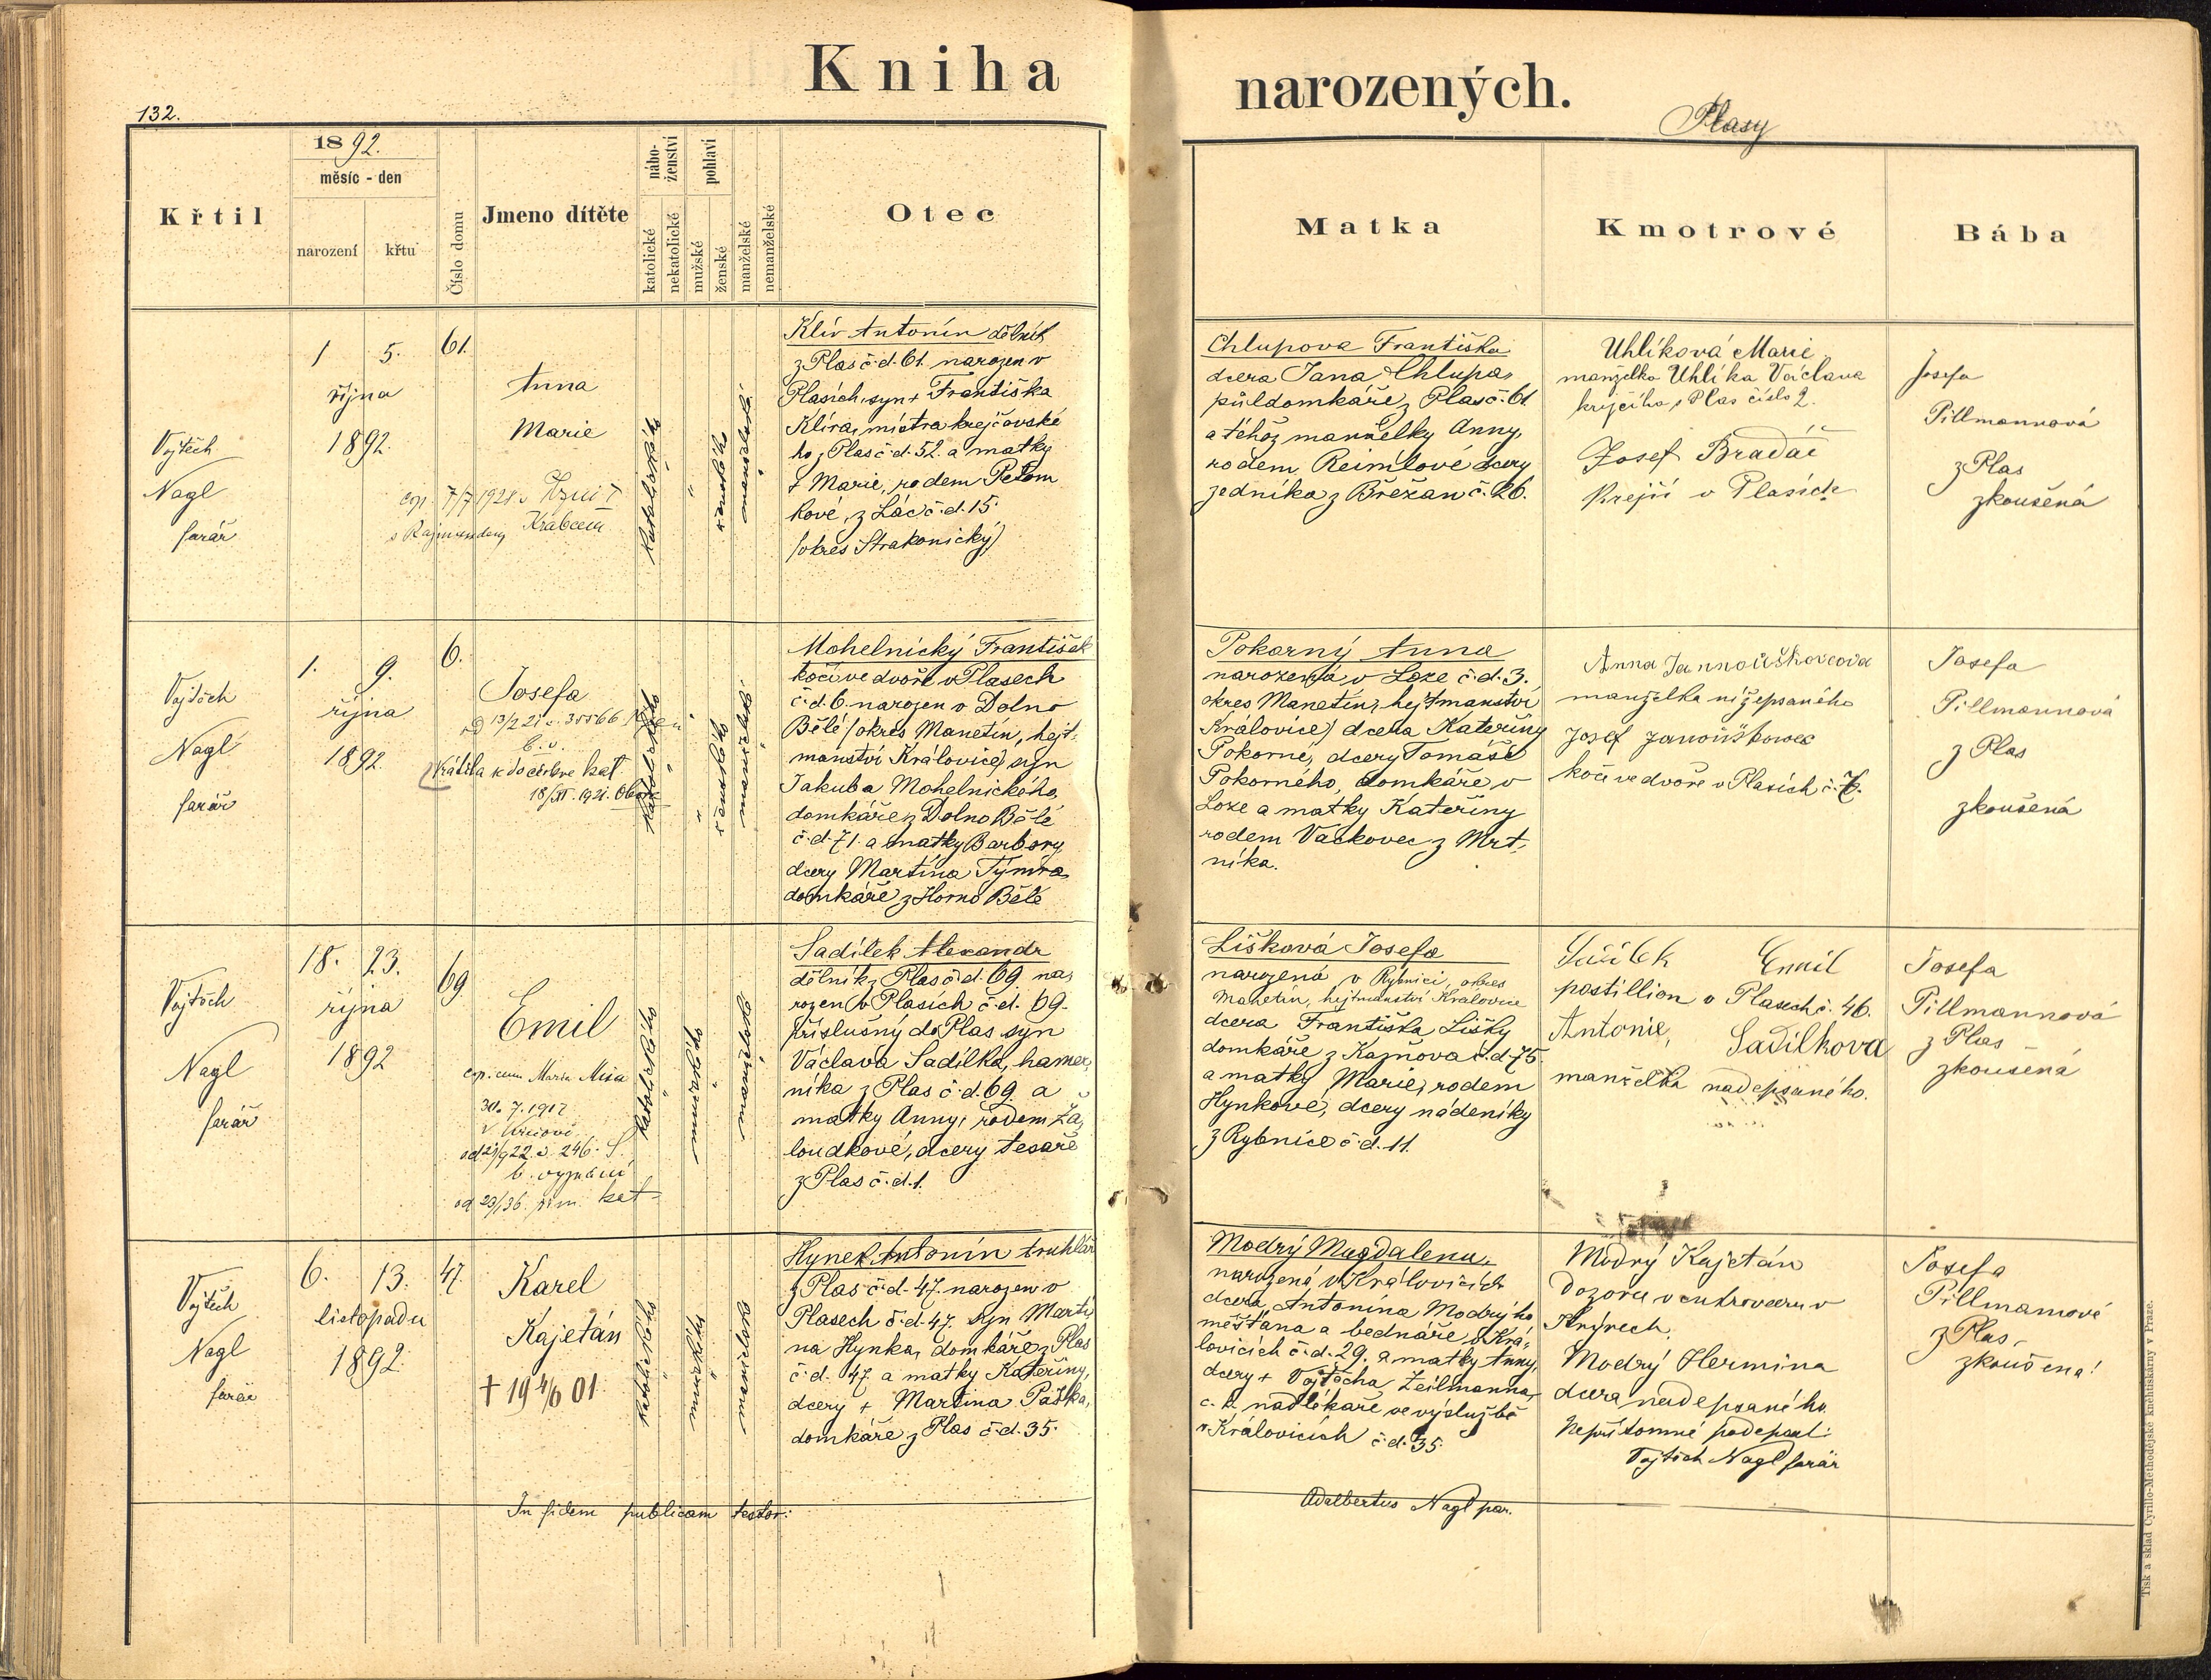 Kniha
narozených.
132.
Plasy
1892.
měsíc - den
Křtil
narození
křtu
Číslo domu
Jmeno dítěte
nábo-
ženství
katolické
nekatolické
pohlaví
mužské
ženské
manželské
nemanželské
Otec
Matka
Kmotrové
Bába
Vojtěch
Nagl
farář
1 5.
října
1892.
61.
Anna
Marie
cop. 7/7 1928
Krabcem
katolického
ženského
manželské
Klír Antonín dělník
z Plas č.d. 61. narozen v
Plasích, syn + Františka
Klíra, mistra krejčovské
ho z Plas č.d. 52. a matky
+ Marie, rodem Petom
kové, z Láz č.d. 15.
(okres Strakonický)
Chlupova Františka
dcera Jana Chlupa,
půldomkáře z Plas č. 61
a téhož manželky Anny,
rodem Reimlové dcery
zedníka z Břežan č. 26.
Uhlíková Marie
manželka Uhlíka Václava
krejčího, Plas číslo 2.
Josef Bradáč
Krejčí v Plasích
Josefa
Pillmannová
z Plas
zkoušená
Vojtěch
Nagl
farář
1. 9.
října
1892.
6.
Josefa
od 13/2 21 č. 35566
b. v.
Vrátila se do církve kat.
18/XII. 1921.
katolického
ženského
manželské
Mohelnický František
kočí ve dvoře v Plasech
č.d. 6. narozen v Dolno
Bělé (okres Manetín, hejt-
manství Královice) syn
Jakuba Mohelnického,
domkáře z Dolno Bělé
č.d. 71. a matky Barbory
dcery Martina Týmra
domkáře z Horno Bělé
Pokorný Anna
narozená v Loze č.d. 3.
okres Manetín, hejtmanství
Královice) dcera Kateřiny
Pokorné, dcery Tomáše
Pokorného, domkáře v
Loze a matky Kateřiny
rodem Vackovec z Mrt-
níka.
Anna Jannouškovcova
manželka nížepsaného
Josef Janouškovec
kočí ve dvoře v Plasích č. 7.
Josefa
Pillmannová
z Plas
zkoušená
Vojtěch
Nagl
farář
18. 23.
října
1892
69.
Emil
cop. cum Maria Míša
30. 7. 1917
b. vyznání
kat
katolického
mužského
manželské
Sadílek Alexandr
dělník z Plas č.d. 69. na-
rozen v Plasích č.d. 69.
příslušný do Plas syn
Václava Sadílka, hamer-
níka z Plas č.d. 69. a
matky Anny, rodem Ža-
loudkové, dcery tesaře
z Plas č.d. 1.
Lišková Josefa
narozená v Rybnici, okres
Manetín, hejtmanství Kralovice
dcera Františka Lišky
domkáře z Kaznova č.d. 75.
a matky Marie, rodem
Hynkové, dcery nádeníky
z Rybnice č.d. 11.
Emil
postillion v Plasech č. 46.
Antonie, Sadilkova
manželka nadepsaného.
Josefa
Pillmannová
z Plas
zkoušená
Vojtěch
Nagl
farář
6. 13.
listopadu
1892.
47.
Karel
Kajetán
† 19 4/6 01
katolického
mužského
manželské
Hynek Antonín truhlář
z Plas č.d. 47. narozen v
Plasech č.d. 47. syn Marti-
na Hynka, domkáře z Plas
č.d. 47. a matky Kateřiny,
dcery + Martina Paška,
domkáře z Plas č.d. 35.
Modrý Magdalena,
narozená v Královicích
dcera Antonína Modrýho,
měšťana a bednáře v Krá-
lovicích č.d. 29. a matky Anny,
dcery + Vojtěcha Zeilmanna,
c. k. nadlékaře ve výslužbě
v Královicích č.d. 35.
Modrý Kajetán
Dozorce v cukrovaru v
Modrý Hermina
dcera nadepsaného.
Nepřítomné podepsal:
Vojtěch Nagl farář
Josefa
Pillmanové
z Plas
zkoušena!
In fidem publicam testor:
Adalbertus Nagl par.
Tisk a sklad Cyrillo-Methodějské knihtiskárny v Praze.